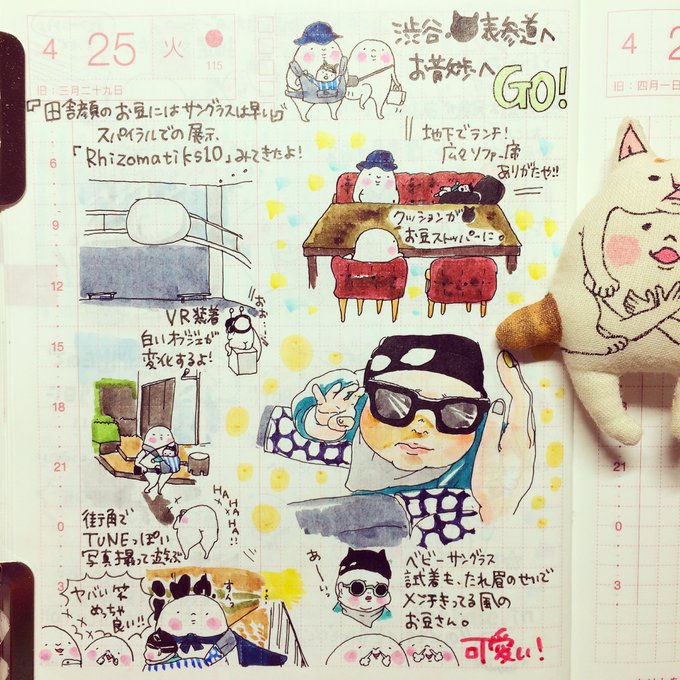 4 25 火
115
旧：三月二十九日
渋谷 表参道へ
お散歩へ GO!
『田舎顔のお豆にはサングラスは早い』
スパイラルでの展示、
「Rhizomatiks10」みてきたよ!
地下でランチ!
広々ソファー席
ありがたや!!
クッションが
お豆ストッパーに。
VR装着
白いオブジェが
変化するよ!
おぉ…
街角で
TUNEっぽい
写真撮って遊ぶ
HA HA HA HA!!
ベビーサングラス
試着も、たれ眉のせいで
メンチきってる風の
お豆さん。
可愛い!
あーっ
ヤバい笑
めっちゃ
良い!!
すんっ
6
9
12
15
18
21
0
3
4 2
旧：四月一日
21
0
3